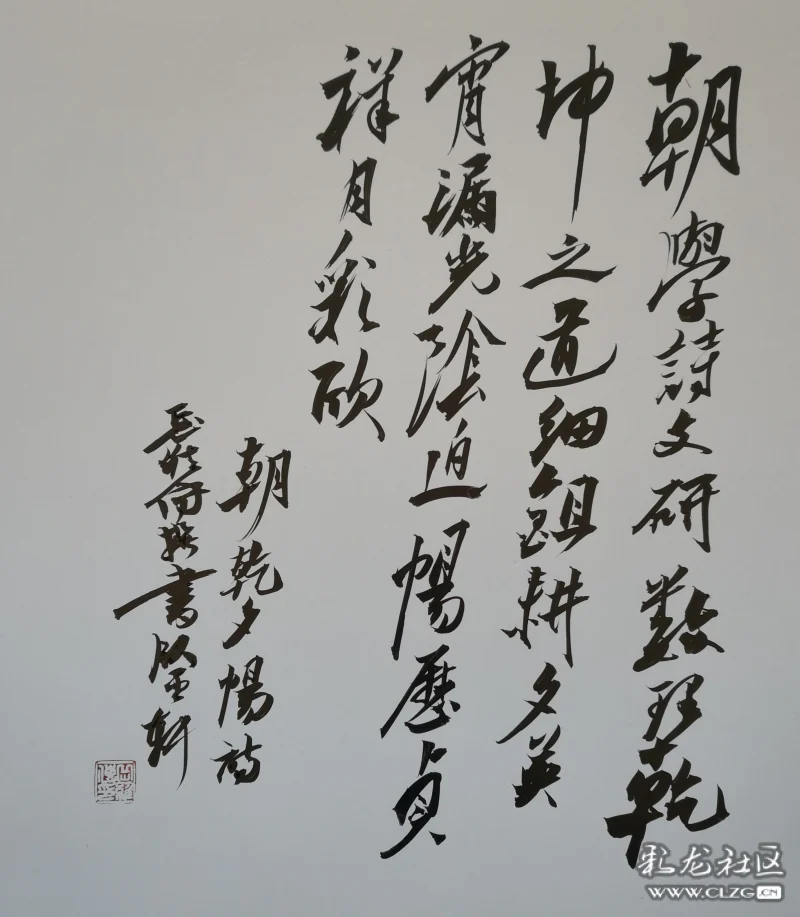 朝學詩文研數理乾
坤之道細鋤耕夕英
宵漏光陰迫惕歷貞
祥月彩欣
朝乾夕惕詩
書 軒
彩龙社区
WWW.CLZG.CN